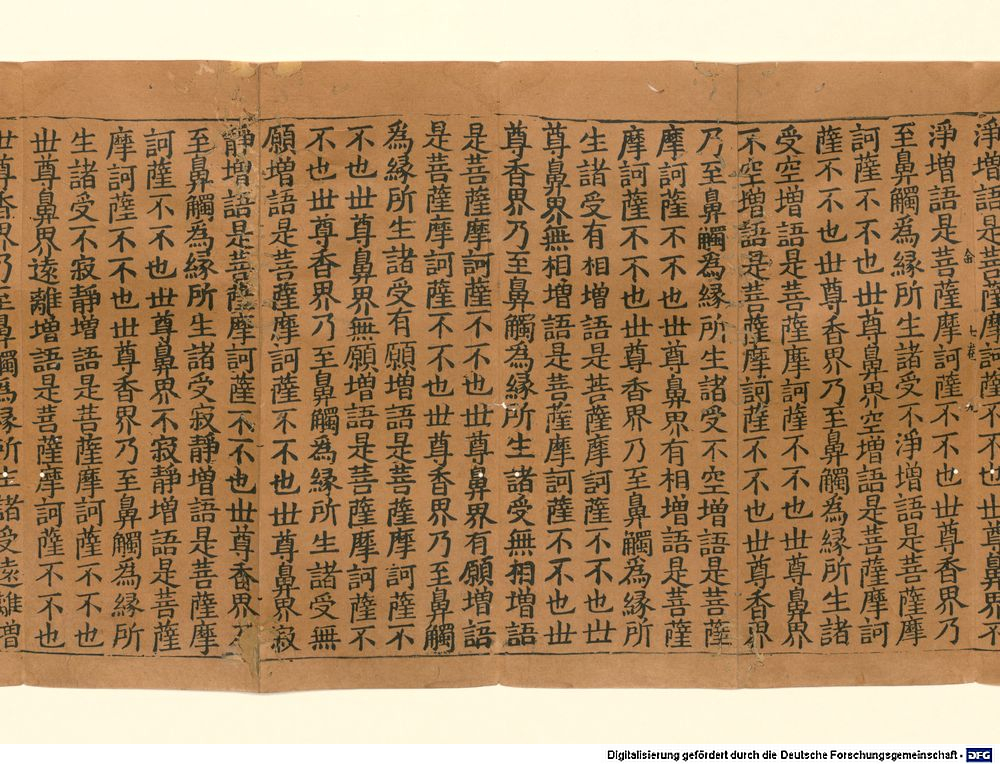 淨增語是菩薩摩訶薩不不也世尊鼻界不
七卷 九
淨增語是菩薩摩訶薩不不也世尊香界乃
至鼻觸為緣所生諸受不淨增語是菩薩摩
訶薩不不也世尊鼻界空增語是菩薩摩訶
薩不不也世尊香界乃至鼻觸為緣所生諸
受空增語是菩薩摩訶薩不不也世尊鼻界
不空增語是菩薩摩訶薩不不也世尊香界
乃至鼻觸為緣所生諸受不空增語是菩薩
摩訶薩不不也世尊鼻界有相增語是菩薩
摩訶薩不不也世尊香界乃至鼻觸為緣所
生諸受有相增語是菩薩摩訶薩不不也世
尊鼻界無相增語是菩薩摩訶薩不不也世
尊香界乃至鼻觸為緣所生諸受無相增語
是菩薩摩訶薩不不也世尊鼻界有願增語
是菩薩摩訶薩不不也世尊香界乃至鼻觸
為緣所生諸受有願增語是菩薩摩訶薩不
不也世尊鼻界無願增語是菩薩摩訶薩不
不也世尊香界乃至鼻觸為緣所生諸受無
願增語是菩薩摩訶薩不不也世尊鼻界寂
靜增語是菩薩摩訶薩不不也世尊香界乃
至鼻觸為緣所生諸受寂靜增語是菩薩摩
訶薩不不也世尊鼻界不寂靜增語是菩薩
摩訶薩不不也世尊香界乃至鼻觸為緣所
生諸受不寂靜增語是菩薩摩訶薩不不也
世尊鼻界遠離增語是菩薩摩訶薩不不也
世尊香界乃至鼻觸為緣所生諸受遠離增
Digitalisierung gefördert durch die Deutsche Forschungsgemeinschaft - DFG